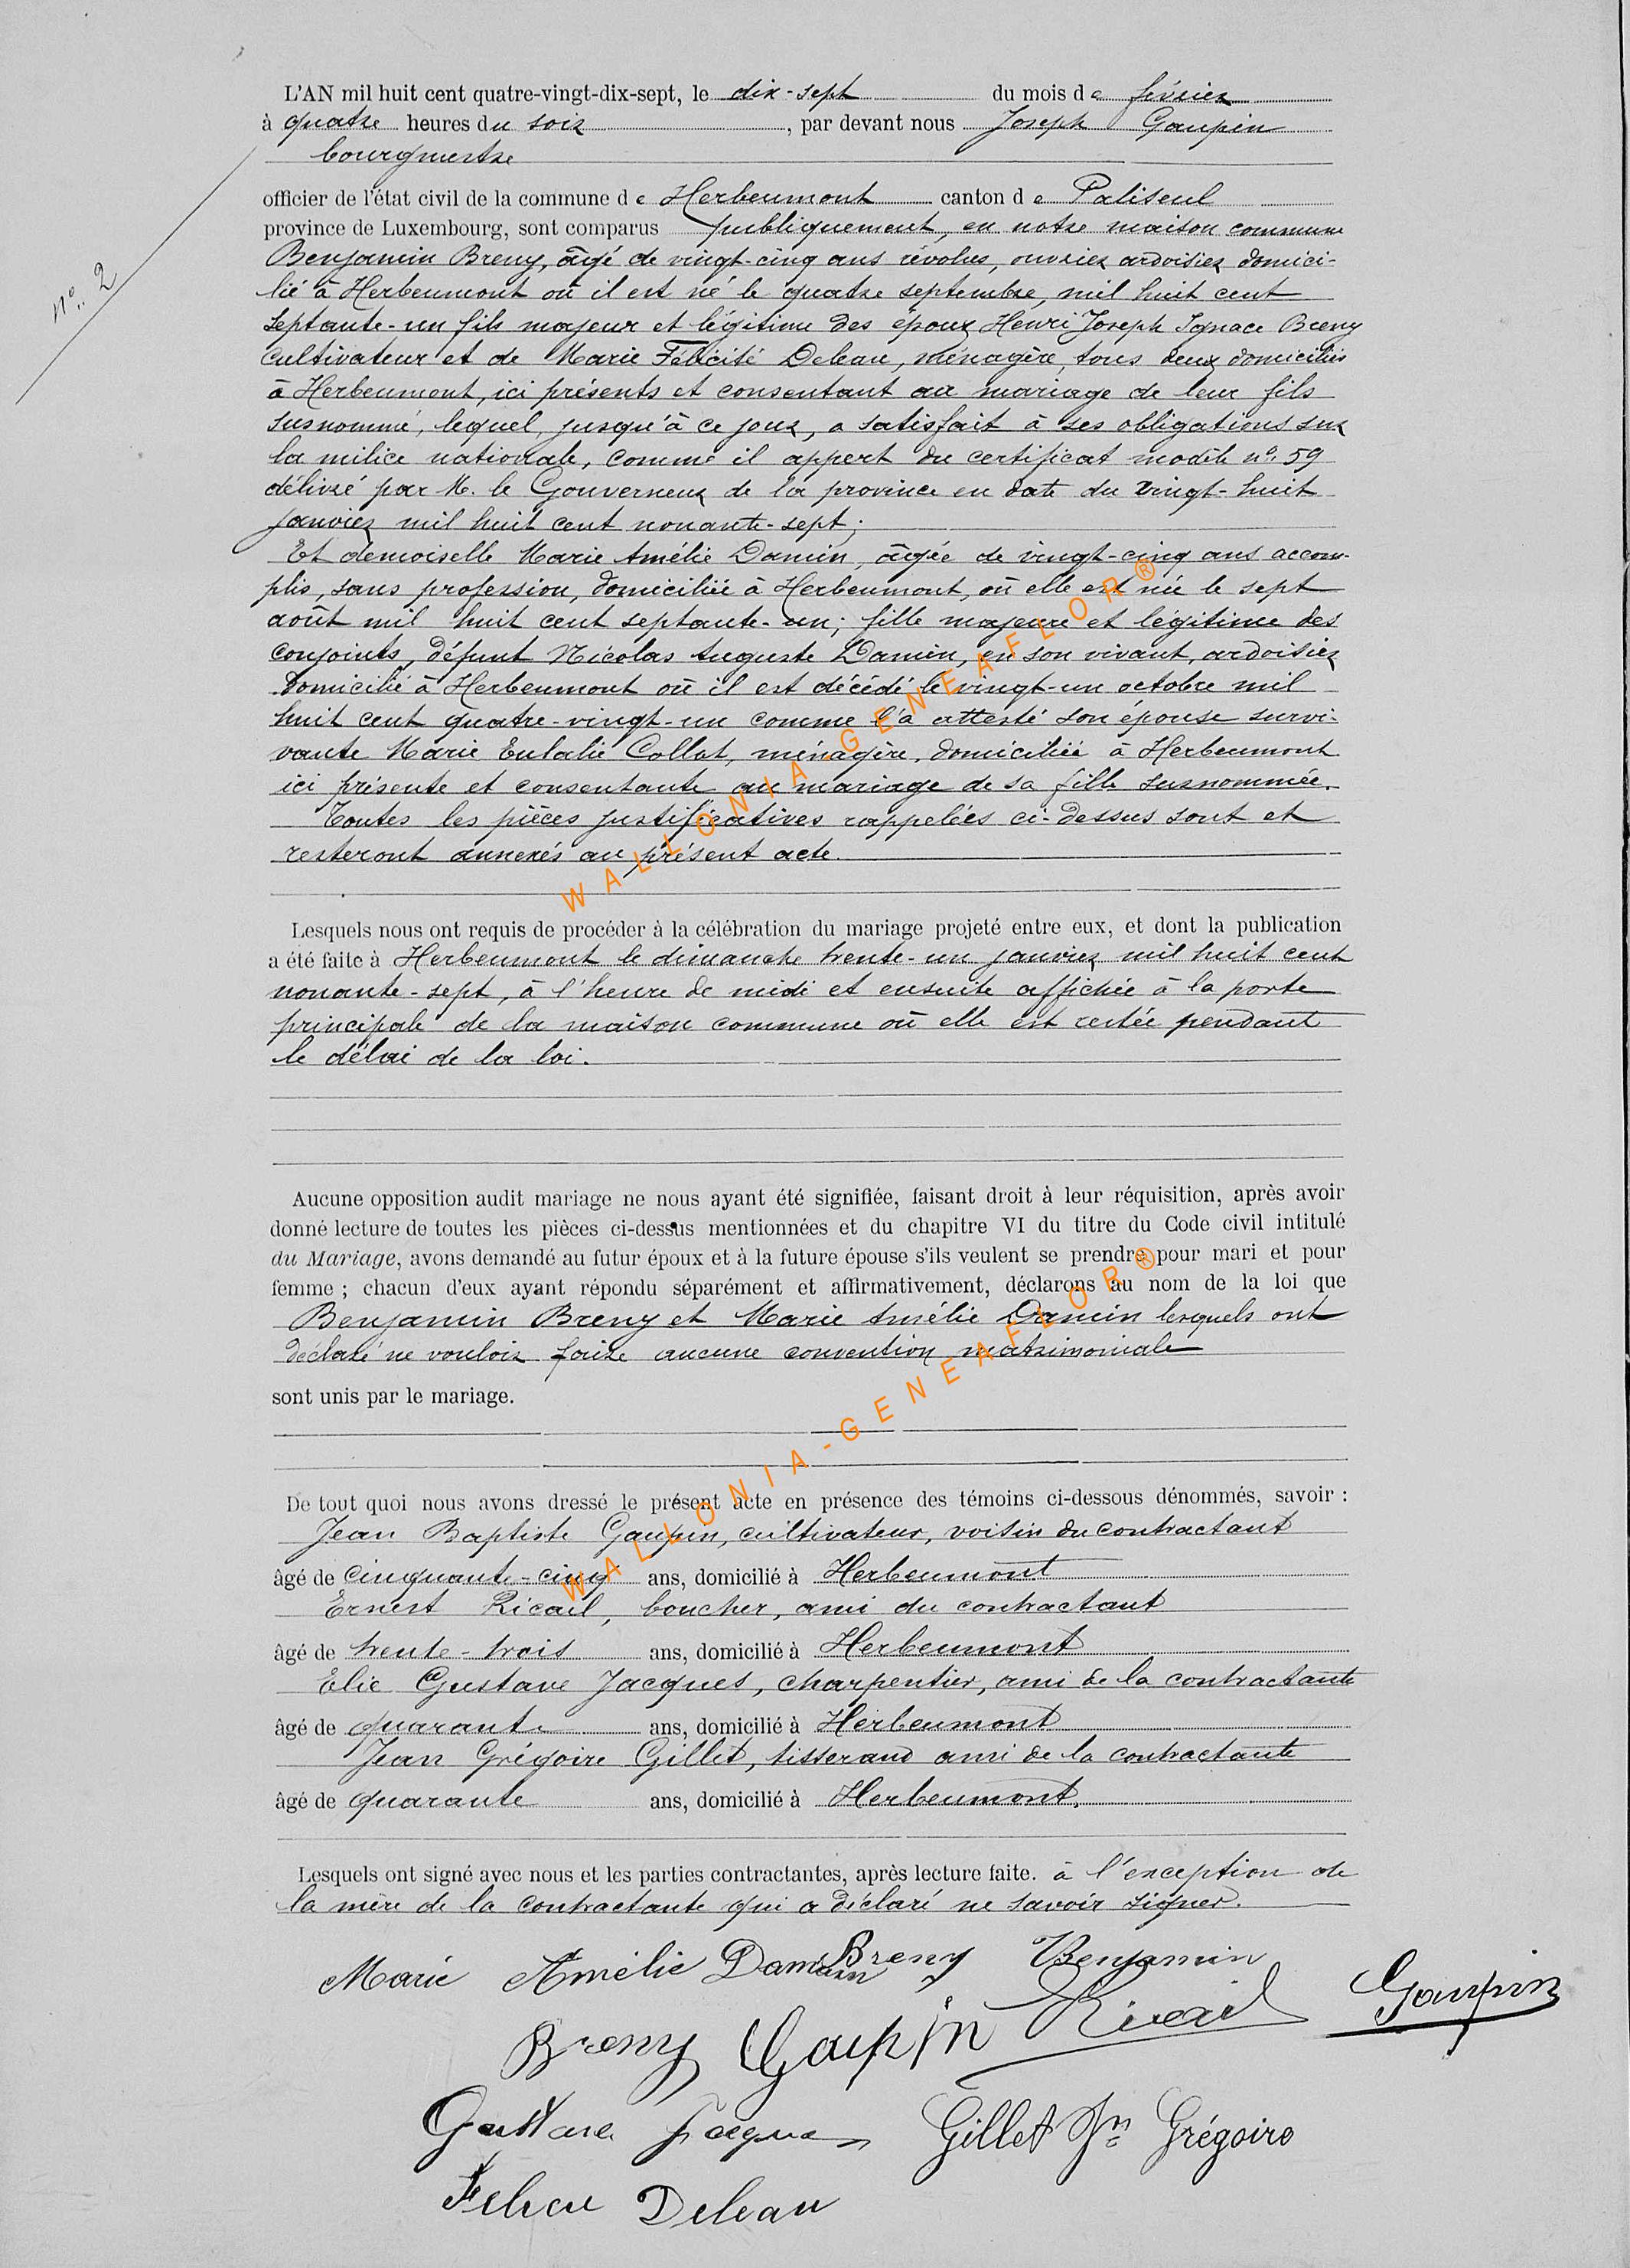 L'AN mil huit cent quatre-vingt-dix-sept, le dix-sept du mois de février
à quatre heures du soir, par devant nous Joseph Gaupin
bourgmestre
officier de l'état civil de la commune de Herbeumont canton de Paliseul
province de Luxembourg, sont comparus publiquement, en notre maison commune
n° 2
Benjamin Breny, âgé de vingt-cinq ans révolus, ouvrier ardoisier domici-
lié à Herbeumont où il est né le quatre septembre, mil huit cent
septante-un fils majeur et légitime des époux Henri Joseph Ignace Breny
cultivateur et de Marie Félicité Deleau, ménagère, tous deux domiciliés
à Herbeumont, ici présents et consentant au mariage de leur fils
susnommé, lequel, jusqu'à ce jour, a satisfait à ses obligations sur
la milice nationale, comme il appert du certificat modèle n° 59
délivré par M. le Gouverneur de la province en date du vingt-huit
janvier mil huit cent nonante-sept;
Et demoiselle Marie Amélie Damin, âgée de vingt-cinq ans accom-
plis, sans profession, domiciliée à Herbeumont, où elle est née le sept
août mil huit cent septante-un; fille majeure et légitime des
conjoints, défunt Nicolas Auguste Damin, en son vivant, ardoisier
domicilié à Herbeumont où il est décédé le vingt-un octobre mil
huit cent quatre-vingt-un comme l'a attesté son épouse survi-
vante Marie Eulalie Collot, ménagère, domiciliée à Herbeumont
ici présente et consentante au mariage de sa fille susnommée.
Toutes les pièces justificatives rappelées ci-dessus sont et
resteront annexés au présent acte.
WALLONIA-GENEAFLOR®
Lesquels nous ont requis de procéder à la célébration du mariage projeté entre eux, et dont la publication
a été faite à Herbeumont le dimanche trente-un janvier mil huit cent
nonante-sept, à l'heure de midi et ensuite affichée à la porte
principale de la maison commune où elle est restée pendant
le délai de la loi.
Aucune opposition audit mariage ne nous ayant été signifiée, faisant droit à leur réquisition, après avoir
donné lecture de toutes les pièces ci-dessus mentionnées et du chapitre VI du titre du Code civil intitulé
du Mariage, avons demandé au futur époux et à la future épouse s'ils veulent se prendre pour mari et pour
femme ; chacun d'eux ayant répondu séparément et affirmativement, déclarons au nom de la loi que
Benjamin Breny et Marie Amélie Damin lesquels ont
déclaré ne vouloir faire aucune convention matrimoniale
sont unis par le mariage.
WALLONIA-GENEAFLOR®
De tout quoi nous avons dressé le présent acte en présence des témoins ci-dessous dénommés, savoir :
Jean Baptiste Gaupin, cultivateur, voisin du contractant
âgé de cinquante-cinq ans, domicilié à Herbeumont
Ernest Ricail, boucher, ami du contractant
âgé de trente-trois ans, domicilié à Herbeumont
Elie Gustave Jacques, charpentier, ami de la contractante
âgé de quarante ans, domicilié à Herbeumont
Jean Grégoire Gillet, tisserand ami de la contractante
âgé de quarante ans, domicilié à Herbeumont.
Lesquels ont signé avec nous et les parties contractantes, après lecture faite. à l'exception de
la mère de la contractante qui a déclaré ne savoir signer.
Marie Amélie Damin Breny Benjamin
Breny Gaupin Ricail Gaupin
Gustave Jacques Gillet Jn Grégoire
Deleau